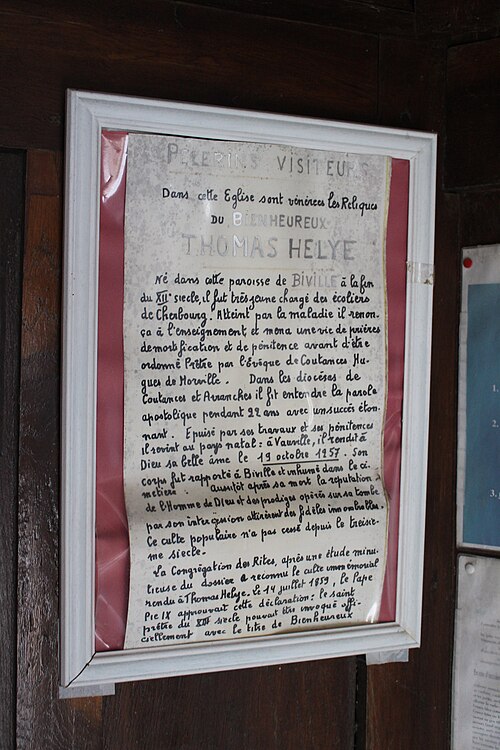 PELERINS VISITEURS
Dans cette Eglise sont vénérées les Reliques
DU BIENHEUREUX
THOMAS HELYE
Né dans cette paroisse de BIVILLE à la fin
du XIIe siecle, il fut très jeune chargé des écoliers
de Cherbourg. Atteint par la maladie il renon-
ça à l'enseignement et mena une vie de prières
de mortification et de pénitence avant d'être
ordonné Prêtre par l'Evêque de Coutances Hu-
gues de Morville. Dans les diocèses de
Coutances et Avranches il fit entendre la parole
apostolique pendant 22 ans avec un succès éton-
nant. Epuisé par ses travaux et ses pénitences
il revint au pays natal: à Vauville, il rendit à
Dieu sa belle âme le 19 octobre 1257. Son
corps fut rapporté à Biville et inhumé dans le ci-
metière. Aussitôt après sa mort la réputation
de l'Homme de Dieu et des prodiges opérés sur sa tombe
par son intercession attirèrent des fidèles innombrables.
Ce culte populaire n'a pas cessé depuis le treizie-
me siecle.
La Congrégation des Rites, après une étude minu-
tieuse du dossier a reconnu le culte immémorial
rendu à Thomas Helye. Le 14 juillet 1859, le Pape
Pie IX approuvait cette déclaration: le saint
prêtre du XIIIe siecle pouvait être invoqué offi-
ciellement avec le titre de Bienheureux
1.
2.
3.